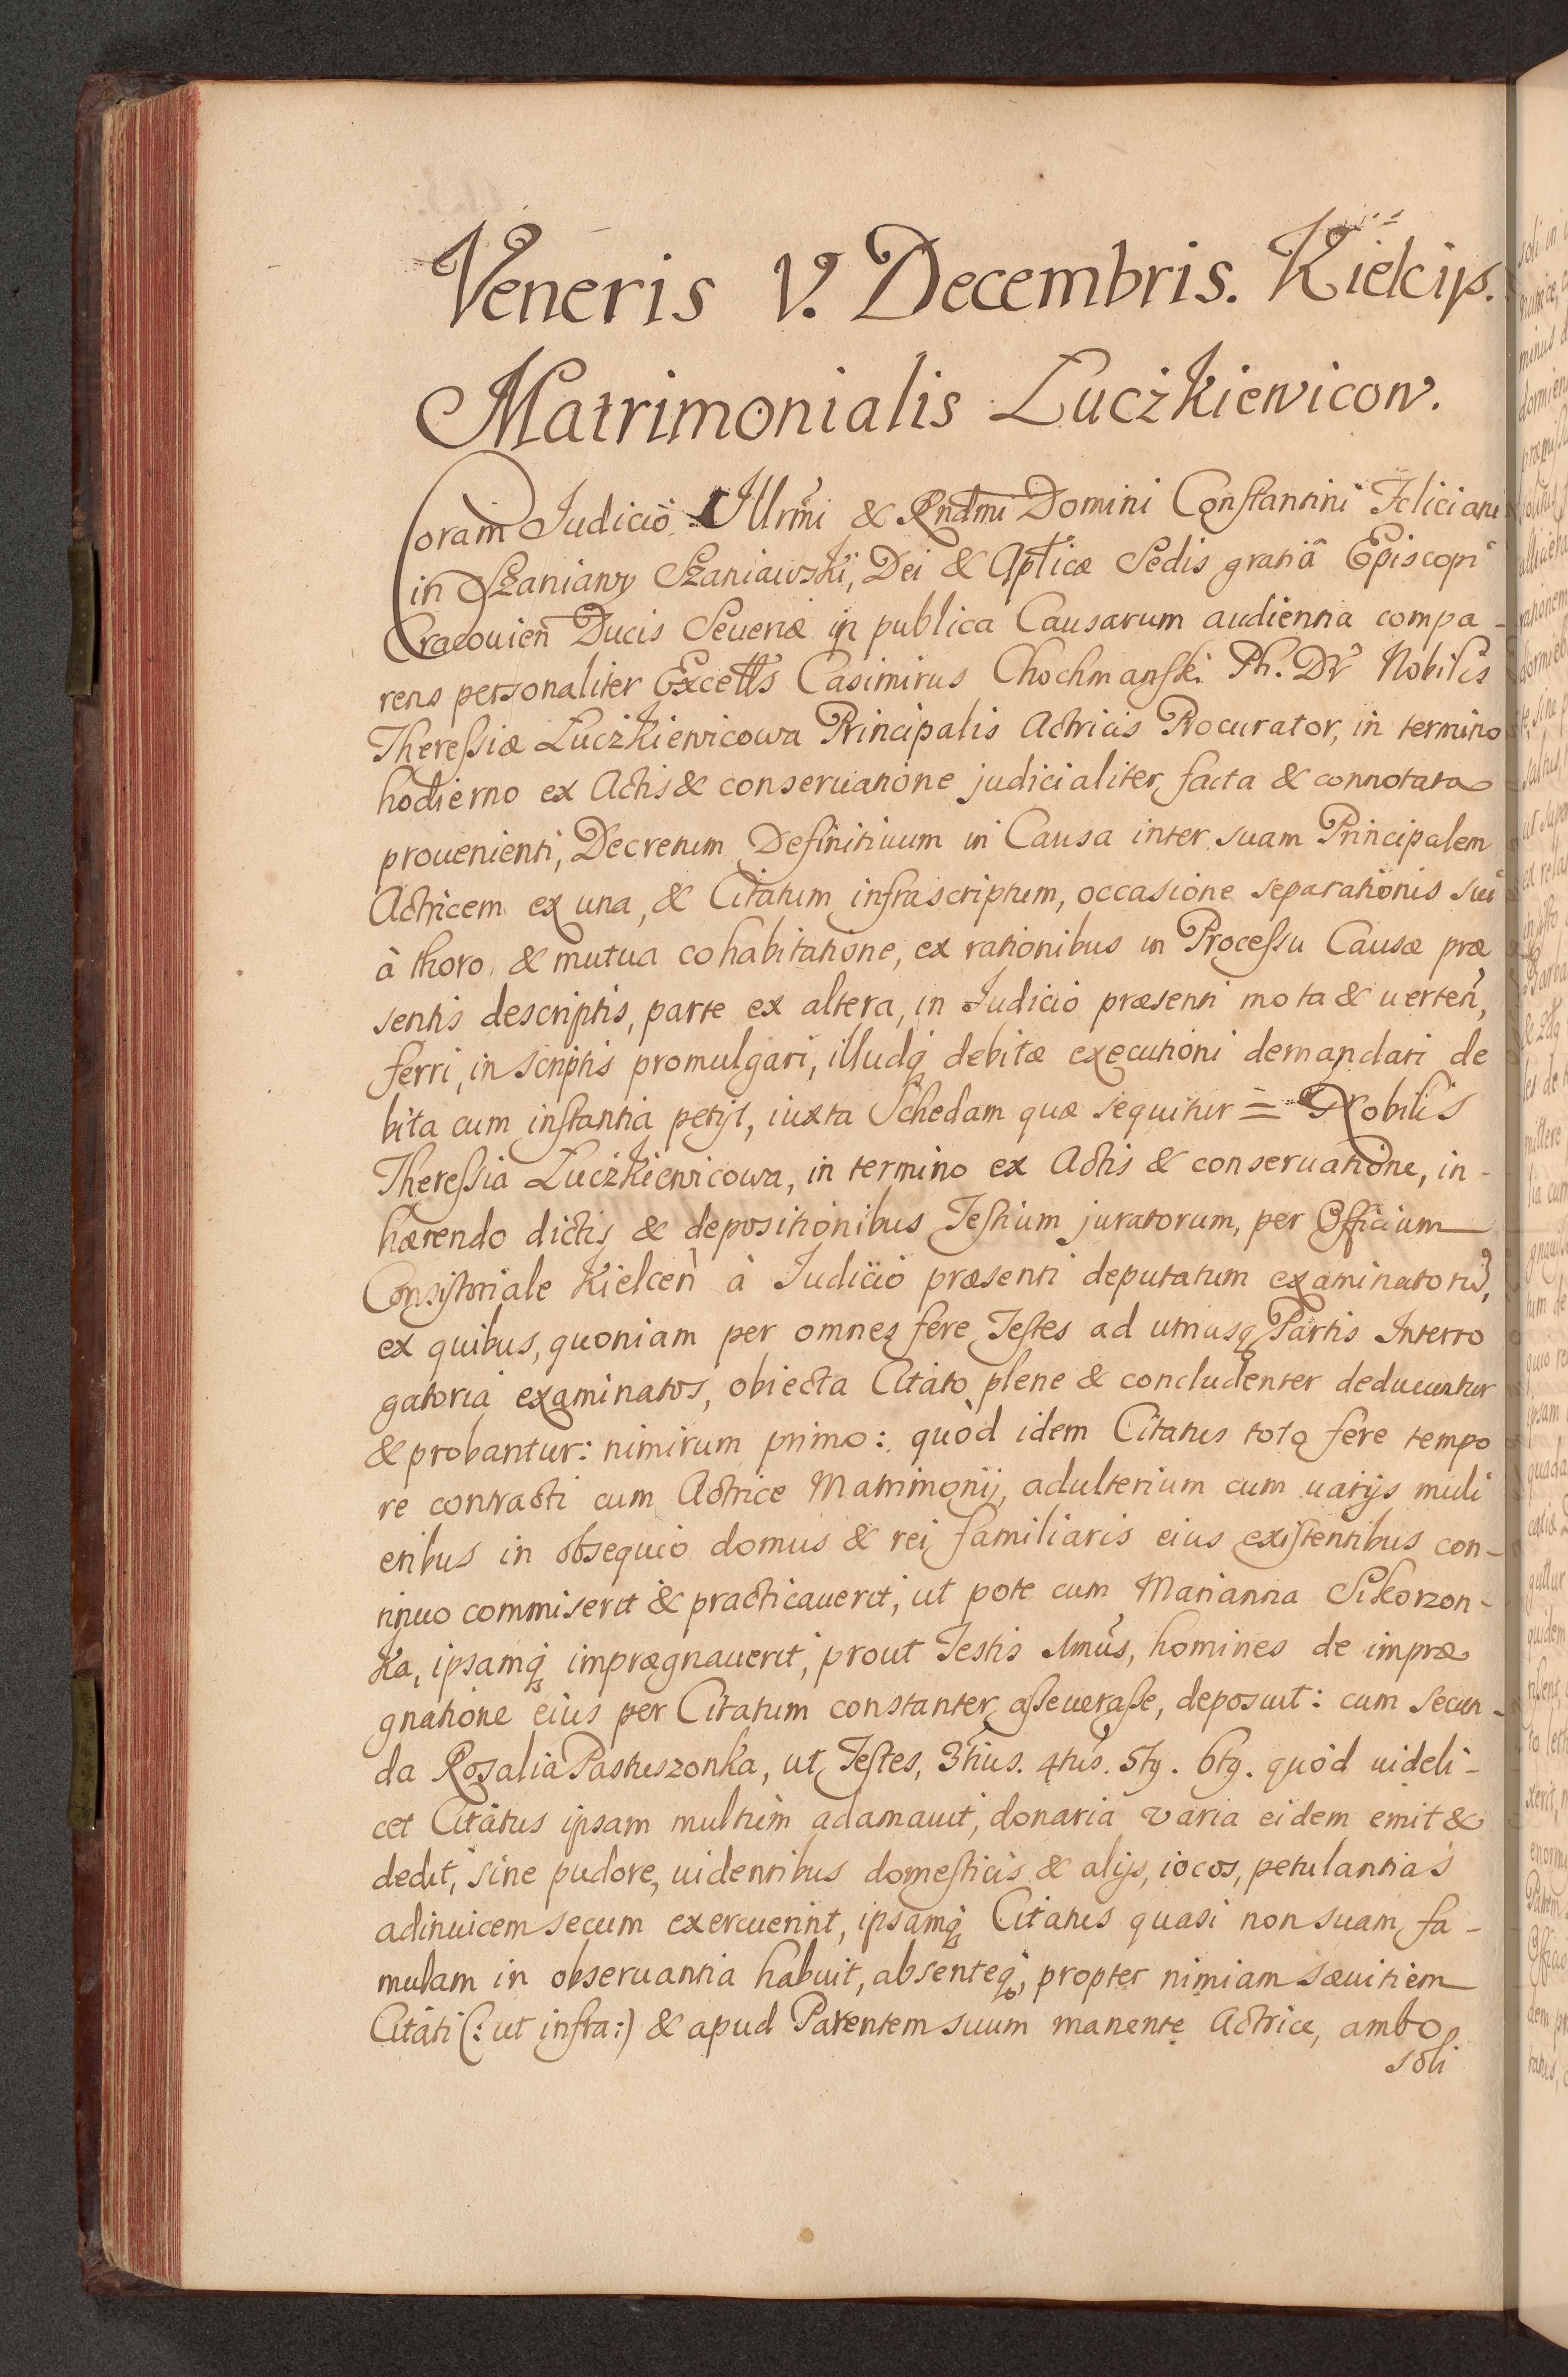 Veneris V. Decembris. Kielcijs.
Matrimonialis Łuczkiewicow.
Coram Judicio Illrmi & Rndmi Domini Constantini Feliciani
in Szaniawy Szaniawski, Dei & Aplicæ Sedis gratiâ Episcopi
Cracouien Ducis Seueriæ in publica Causarum audientia compa-
rens personaliter Excells Casimirus Chochmanski Ph. Dr Nobilis
Theressiæ Łuczkiewicowa Principalis Actricis Procurator, in termino
hodierno ex Actis & conseruatione judicialiter facta & connotata
prouenienti, Decretum Definitiuum in Causa inter suam Principalem
Actricem ex una, & Citatum infrascriptum, occasione separationis sui
à thoro & mutua cohabitatione, ex rationibus in Processu Causæ præ
sentis descriptis, parte ex altera, in Judicio præsenti mota & uerten,
ferri, in scriptis promulgari, illudq debitæ executioni demandari de
bita cum instantia petijt, iuxta Schedam quæ sequitur = Nobilis
Theressia Łuczkiewicowa, in termino ex Actis & conseruatione, in-
hærendo dictis & depositionibus Testium juratorum, per Officium
Consistoriale Kielcen à Judicio præsenti deputatum examinatorũ,
ex quibus, quoniam per omnes fere Testes ad utriusq Partis Interro
gatoria examinatos, obiecta Citato plene & concludenter deducuntur
& probantur: nimirum primo: quòd idem Citatus toto fere tempo
re contracti cum Actrice Matrimonij, adulterium cum uarijs muli
eribus in obsequio domus & rei familiaris eius existentibus con-
tinuo commiserit & practicauerit, ut pote cum Marianna Sikorzon-
ka, ipsamq imprægnauerit, prout Testis 1mus, homines de impræ
gnatione eius per Citatum constanter asseuerasse, deposuit: cum secun-
da Rosalia Pastuszonka, ut Testes, 3tius. 4tus. 5tg. 6tg. quòd uideli-
cet Citatus ipsam multùm adamauit, donaria varia eidem emit &
dedit, sine pudore, uidentibus domesticis & alijs, iocos, petulantias
adinuicem secum exercuerint, ipsamq Citatus quasi non suam fa-
mulam in obseruantia habuit, absenteq, propter nimiam sæuitiem
Citati (: ut infra :) & apud Parentem suum manente Actrice, ambo
soli